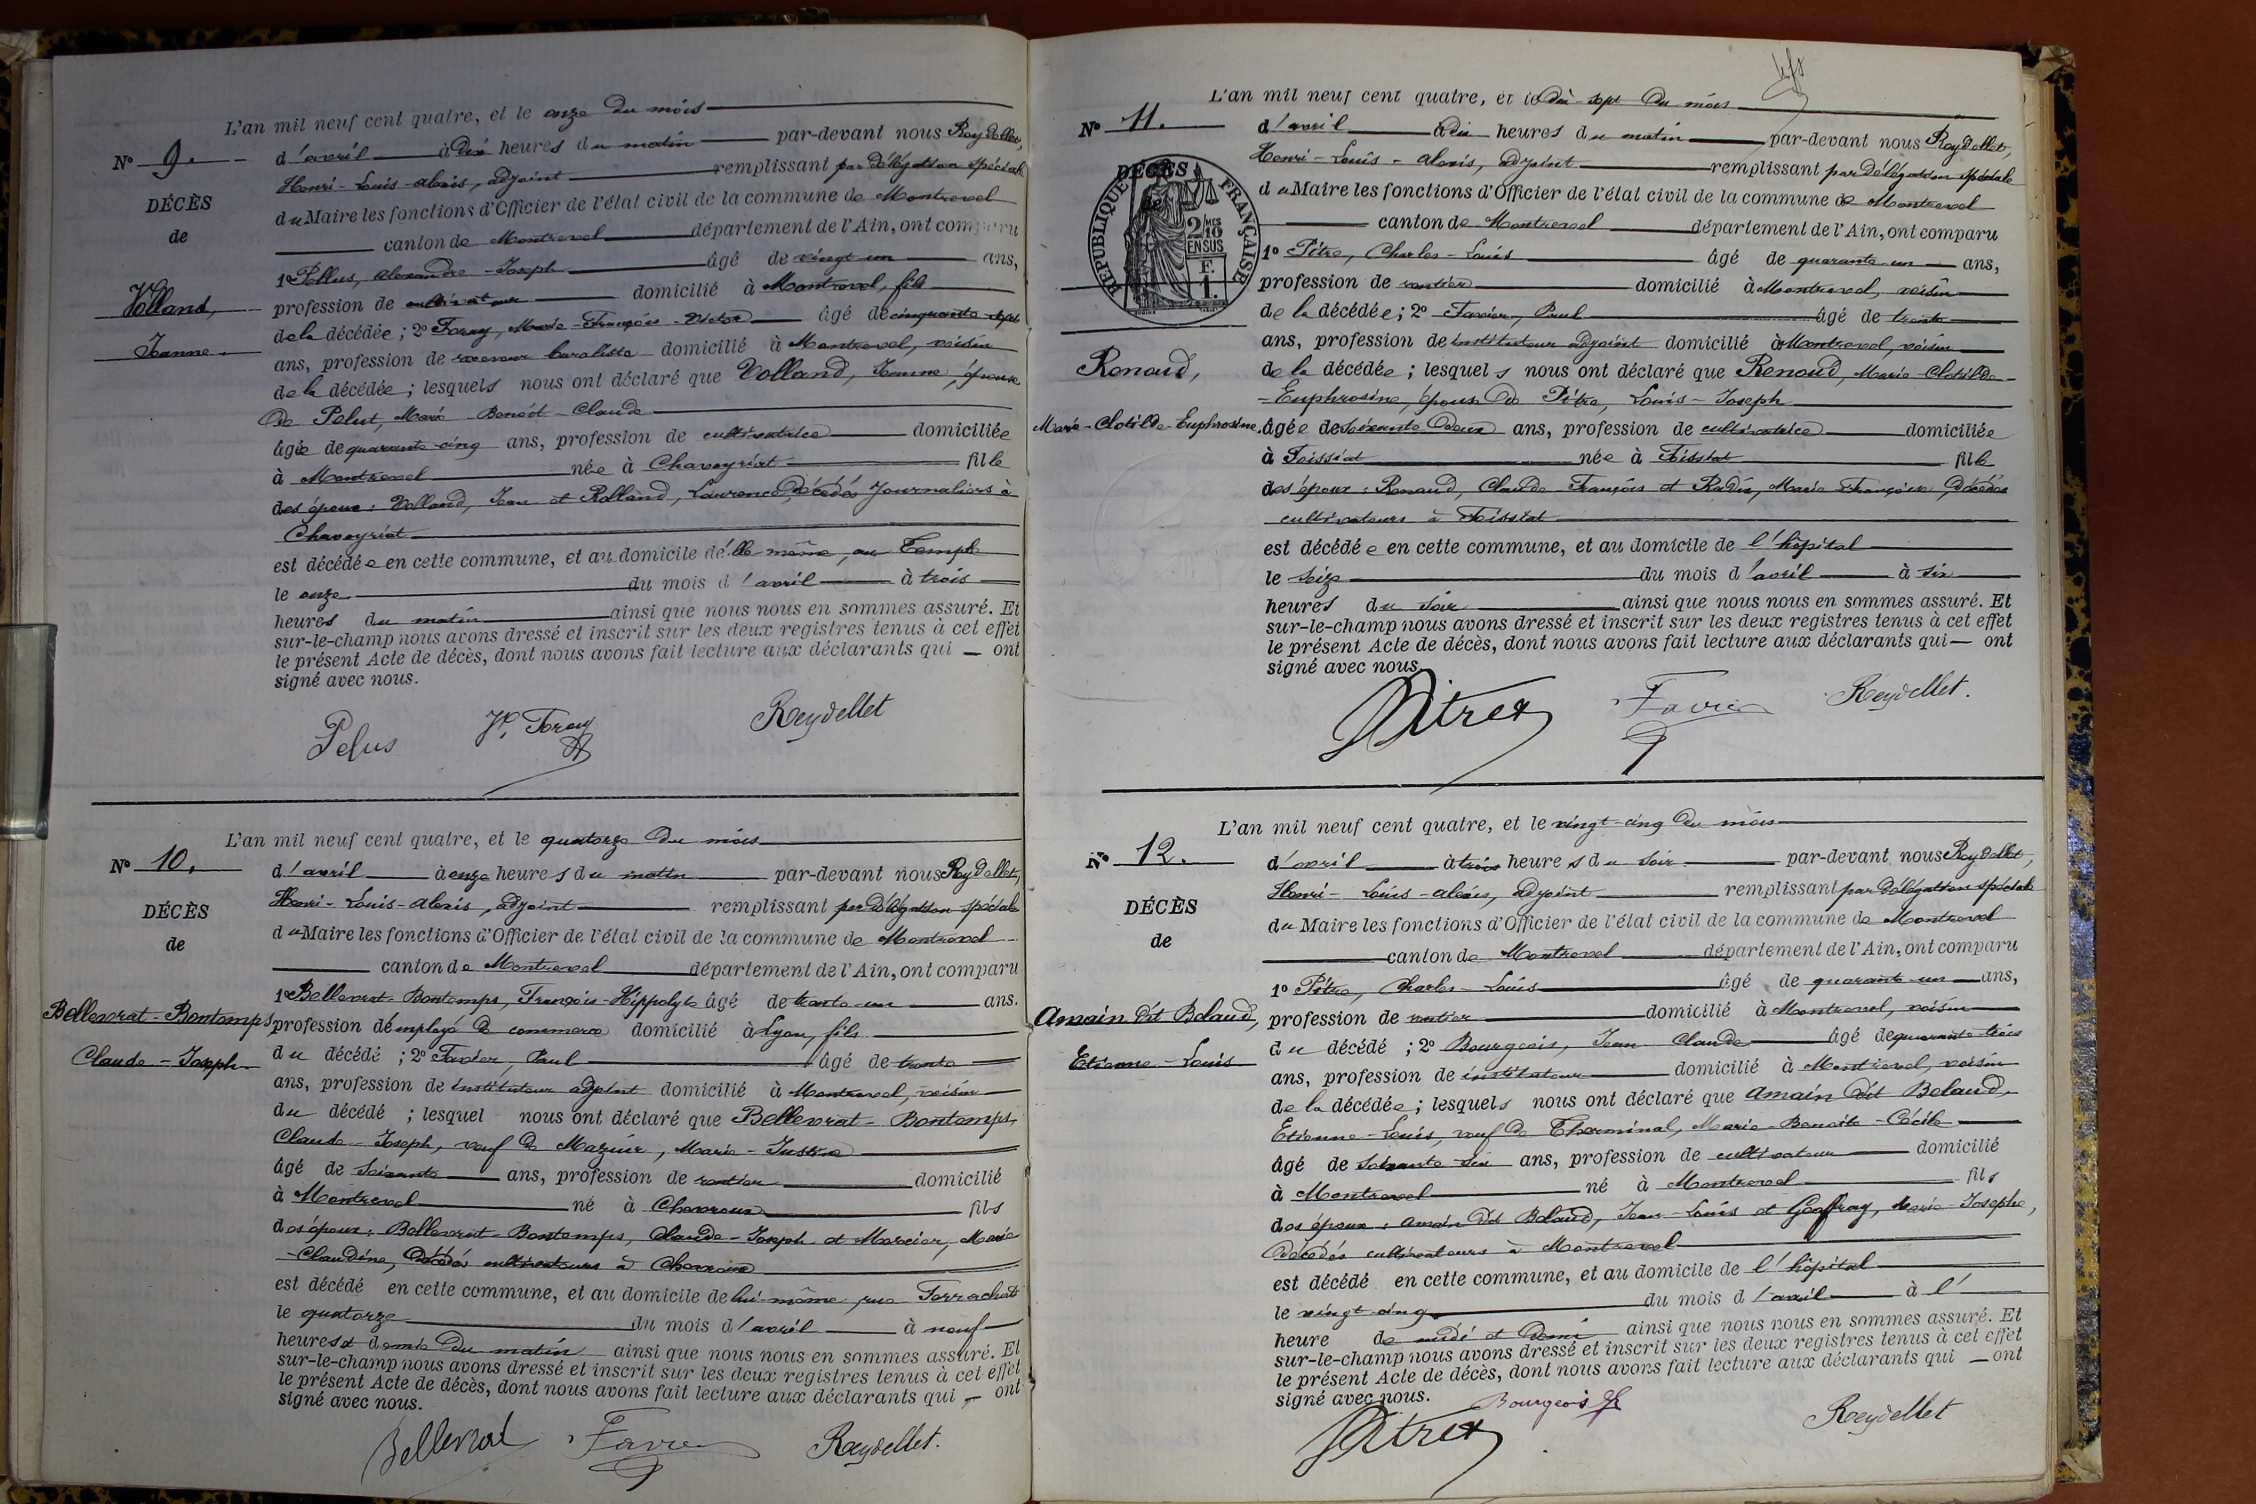 L'an mil neuf cent quatre, et le onze du mois
N° 9.
d'avril à dix heures du matin par-devant nous Reydellet,
Henri-Louis-Alexis, adjoint remplissant par délégation spéciale
DÉCÈS
du Maire les fonctions d'Officier de l'état civil de la commune de Montrevel
de
canton de Montrevel département de l'Ain, ont comparu
1° Pellus, Alexandre-Joseph âgé de vingt un ans,
Volland,
profession de cultivateur domicilié à Montrevel, fils
de la décédée; 2° Foray, Marie-François-Victor âgé de cinquante-sept
Jeanne.
ans, profession de receveur buraliste domicilié à Montrevel, voisin
de la décédée; lesquels nous ont déclaré que Volland, Jeanne, épouse
de Pelut, Marie-Benoît-Claude
âgée de quarante-cinq ans, profession de cultivatrice domiciliée
à Montrevel née à Chaveyriat fille
des époux: Volland, Jean et Rolland, Laurence, décédés journaliers à
Chaveyriat
est décédée en cette commune, et au domicile d'elle-même, au Temple
le onze du mois d'avril à trois
heures du matin ainsi que nous nous en sommes assuré. Et
sur-le-champ nous avons dressé et inscrit sur les deux registres tenus à cet effet
le présent Acte de décès, dont nous avons fait lecture aux déclarants qui — ont
signé avec nous.
Pelus Foray Reydellet
L'an mil neuf cent quatre, et le quatorze du mois
N° 10.
d'avril à onze heures du matin par-devant nous Reydellet,
Henri-Louis-Alexis, adjoint remplissant par délégation spéciale
DÉCÈS
du Maire les fonctions d'Officier de l'état civil de la commune de Montrevel
de
canton de Montrevel département de l'Ain, ont comparu
1° Bellevrat-Bontemps, François-Hippolyte âgé de trente-un ans.
Bellevrat-Bontemps
profession d'employé de commerce domicilié à Lyon, fils
Claude-Joseph
du décédé; 2° Favier, Paul âgé de trente
ans, profession de instituteur adjoint domicilié à Montrevel, voisin
du décédé; lesquel nous ont déclaré que Bellevrat-Bontemps,
Claude-Joseph, veuf de Mazuir, Marie-Justine
âgé de soixante ans, profession de rentier domicilié
à Montrevel né à Chevroux fils
des époux: Bellevrat-Bontemps, Claude-Joseph et Mercier, Marie
-Claudine, décédés cultivateurs à Chevroux
est décédé en cette commune, et au domicile de lui-même, rue
le quatorze du mois d'avril à neuf
heures et demie du matin ainsi que nous nous en sommes assuré. Et
sur-le-champ nous avons dressé et inscrit sur les deux registres tenus à cet effet
le présent Acte de décès, dont nous avons fait lecture aux déclarants qui — ont
signé avec nous.
Bellevrat Favier Reydellet.
L'an mil neuf cent quatre, et le dix-sept du mois
N° 11.
d'avril à dix heures du matin par-devant nous Reydellet,
Henri-Louis-Alexis, adjoint remplissant par délégation spéciale
DÉCÈS
RÉPUBLIQUE FRANÇAISE
2/10 EN SUS
du Maire les fonctions d'Officier de l'état civil de la commune de Montrevel
canton de Montrevel département de l'Ain, ont comparu
1° Pitre, Charles-Louis âgé de quarante un ans,
profession de rentier domicilié à Montrevel, voisin
de la décédée; 2° Favier, Paul âgé de trente
ans, profession de instituteur adjoint domicilié à Montrevel, voisin
Renaud,
de la décédée; lesquels nous ont déclaré que Renaud, Marie-Clotilde-
-Euphrosine, épouse de Pitre, Louis-Joseph
Marie-Clotilde-Euphrosine.
âgée de soixante deux ans, profession de cultivatrice domiciliée
à Foissiat née à Foissiat fille
des époux: Renaud, Claude-François et Radix, Marie Françoise, décédés
cultivateurs à Foissiat
est décédée en cette commune, et au domicile de l'hôpital
le seize du mois d'avril à six
heures du soir ainsi que nous nous en sommes assuré. Et
sur-le-champ nous avons dressé et inscrit sur les deux registres tenus à cet effet
le présent Acte de décès, dont nous avons fait lecture aux déclarants qui — ont
signé avec nous.
Pitre Favier Reydellet.
L'an mil neuf cent quatre, et le vingt-cinq du mois
N° 12.
d'avril à trois heures du soir par-devant nous Reydellet,
Henri-Louis-Alexis, adjoint remplissant par délégation spéciale
DÉCÈS
du Maire les fonctions d'Officier de l'état civil de la commune de Montrevel
de
canton de Montrevel département de l'Ain, ont comparu
1° Pitre, Charles-Louis âgé de quarante-un ans,
Amain dit Belaud,
profession de rentier domicilié à Montrevel, voisin
du décédé; 2° Bourgeois, Jean Claude âgé de quarante trois
Etienne-Louis
ans, profession de instituteur domicilié à Montrevel, voisin
de la décédée; lesquels nous ont déclaré que Amain dit Belaud,
Etienne-Louis, veuf de Therminal, Marie-Benoîte-Cécile
âgé de soixante-six ans, profession de cultivateur domicilié
à Montrevel né à Montrevel fils
des époux: Amain dit Belaud, Jean-Louis et Geoffray, Marie-Josephe,
décédés cultivateurs à Montrevel
est décédé en cette commune, et au domicile de l'hôpital
le vingt-cinq du mois d'avril à l'
heure de midi et demi ainsi que nous nous en sommes assuré. Et
sur-le-champ nous avons dressé et inscrit sur les deux registres tenus à cet effet
le présent Acte de décès, dont nous avons fait lecture aux déclarants qui — ont
signé avec nous.
Pitre Bourgeois Reydellet